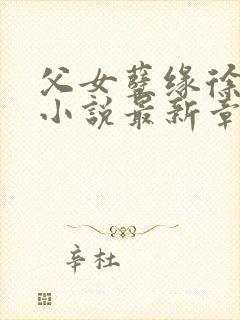 父女孽缘徐
小说最新章
辛杜